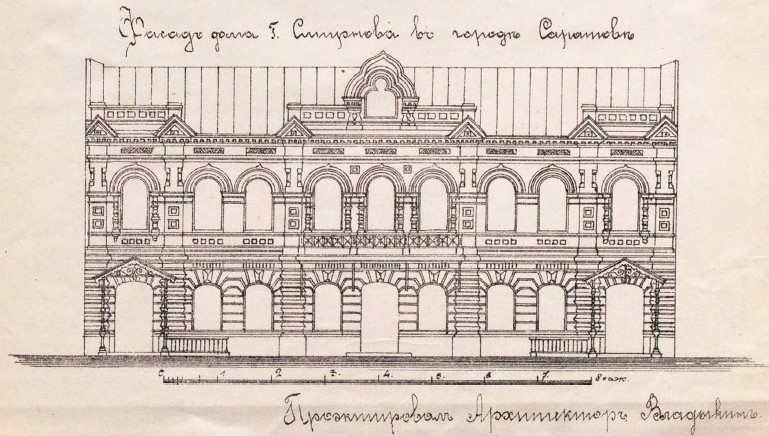 Фасадъ дома Г. Смирнова въ городѣ Саратовѣ
0 1 2 3. 4. 5. 6 7. 8 саж.
Проэктировалъ Архитекторъ Владыкинъ.